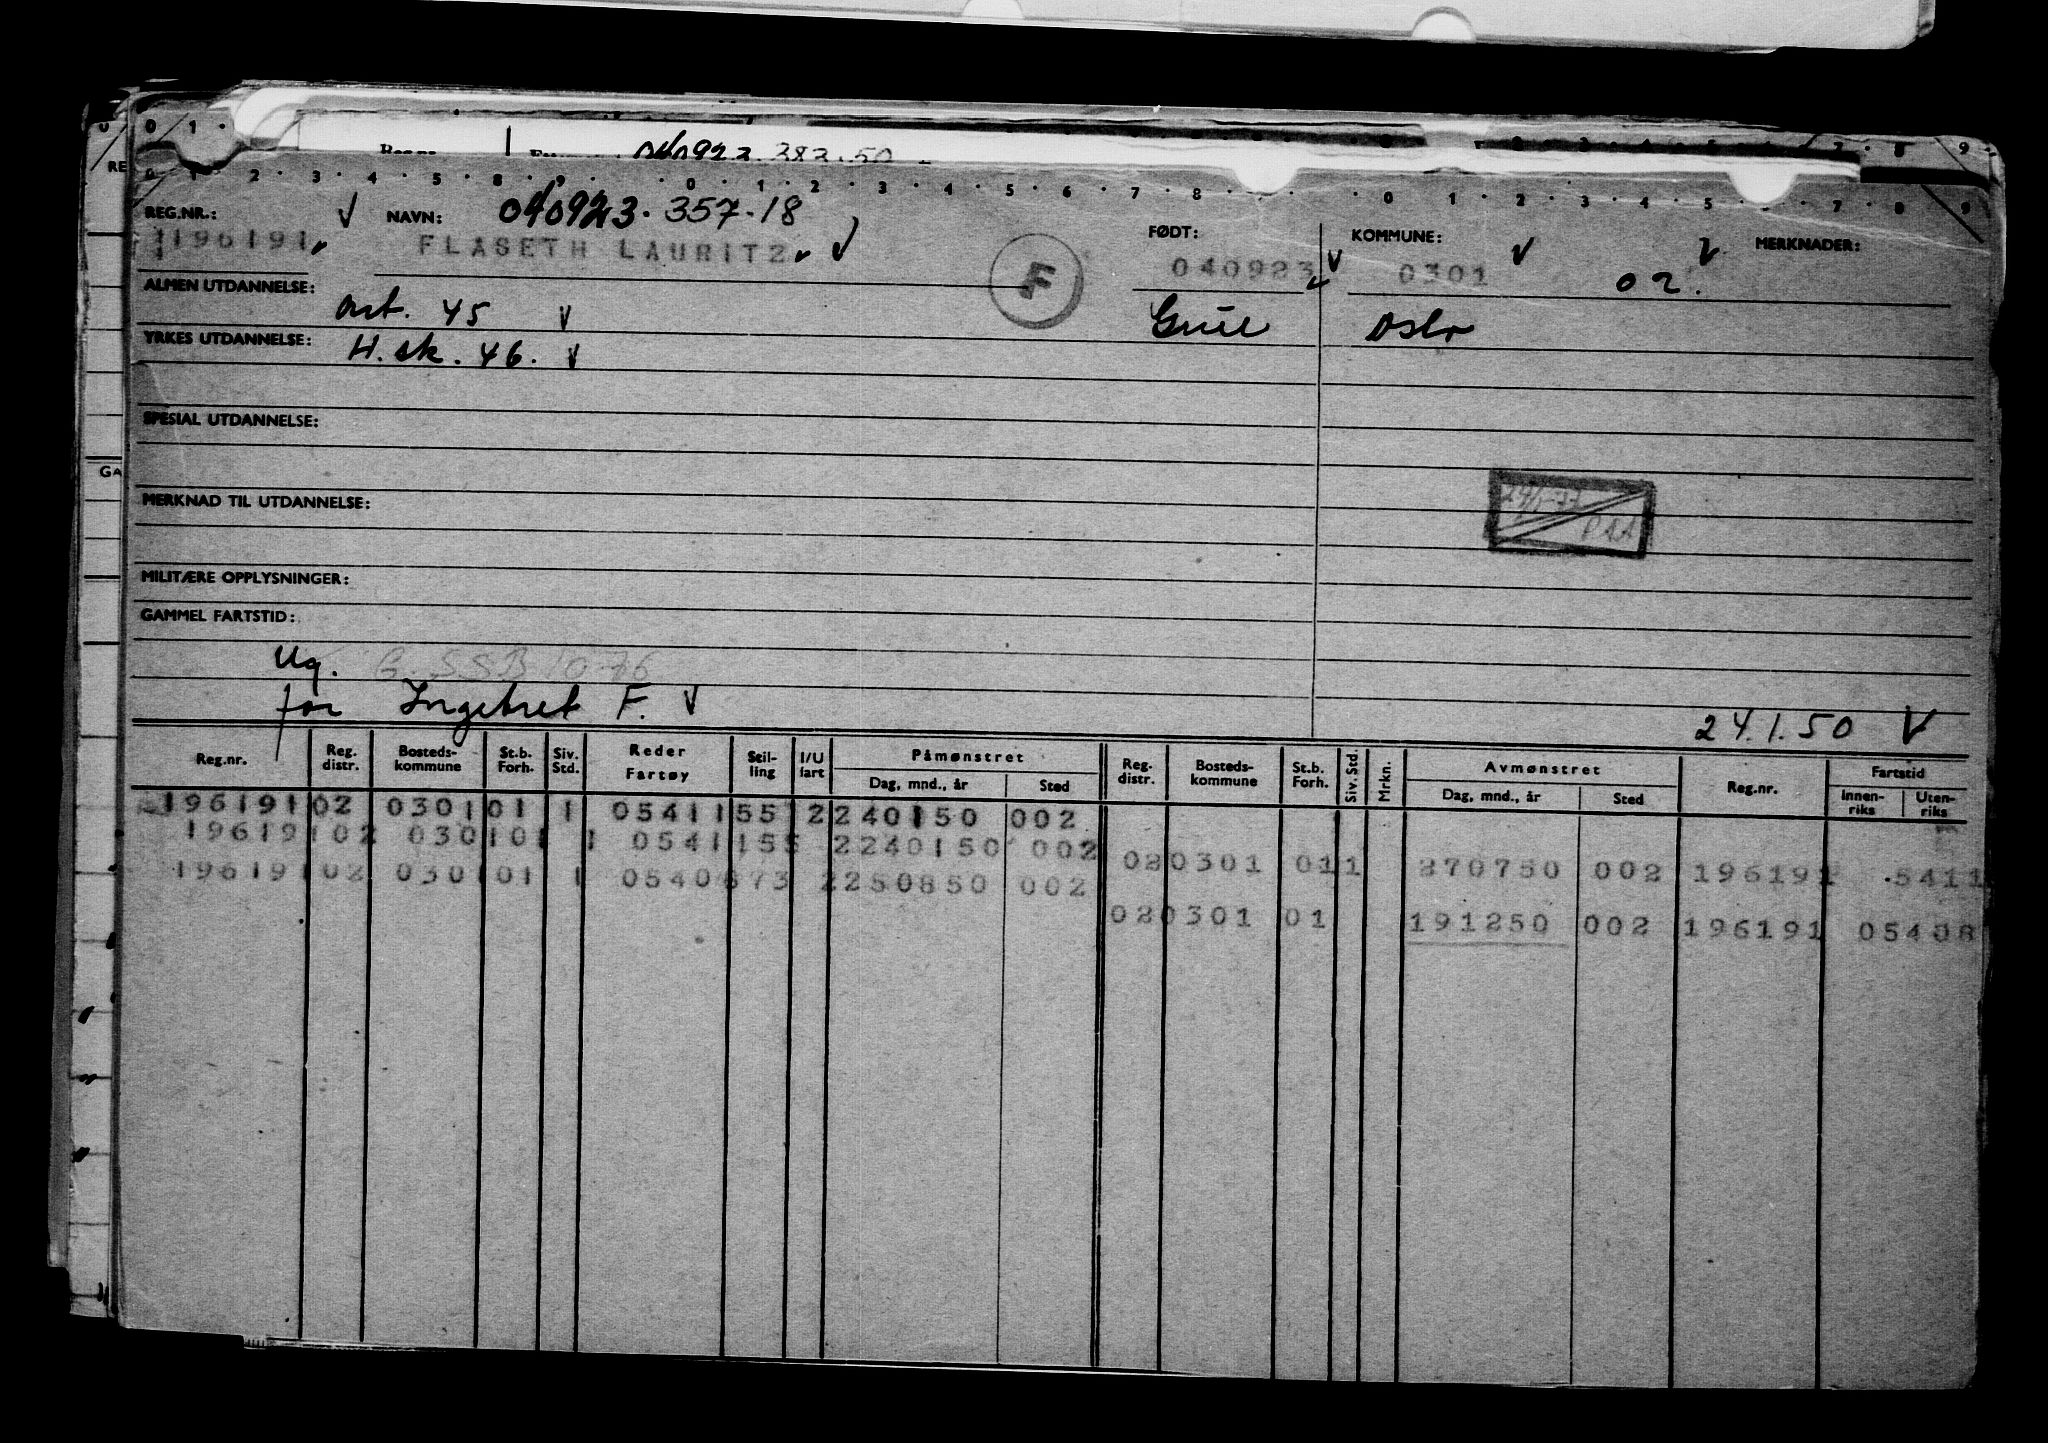 040923 383.50
REG.NR.: NAVN: 040923.357.18 FØDT: KOMMUNE: MERKNADER:
196191 FLASETH LAURITZ F 040923 0301 02.
ALMEN UTDANNELSE: 45
Oslo
YRKES UTDANNELSE: H.sk. 46.
SPESIAL UTDANNELSE:
MERKNAD TIL UTDANNELSE:
MILITÆRE OPPLYSNINGER:
GAMMEL FARTSTID:
Ug.
far Ingebret F.
24.1.50
Reg.nr. Reg. distr. Bosteds-kommune St.b. Forh. Siv. Std. Reder Fartøy Stilling I/U fart Påmønstret Dag, mnd., år Sted Reg. distr. Bosteds-kommune St.b. Forh. Siv. Std. Mrkn. Avmønstret Dag, mnd., år Sted Reg.nr. Fartstid Innen-riks Uten-riks
196191 02 0301 01 1 0541155 2 240150 002
196191 02 0301 01 1 0541155 2 240150 002
02 0301 01 1 270750 002 196191 5411
196191 02 0301 01 1 0540873 2 250850 002
02 0301 01 191250 002 196191 05408